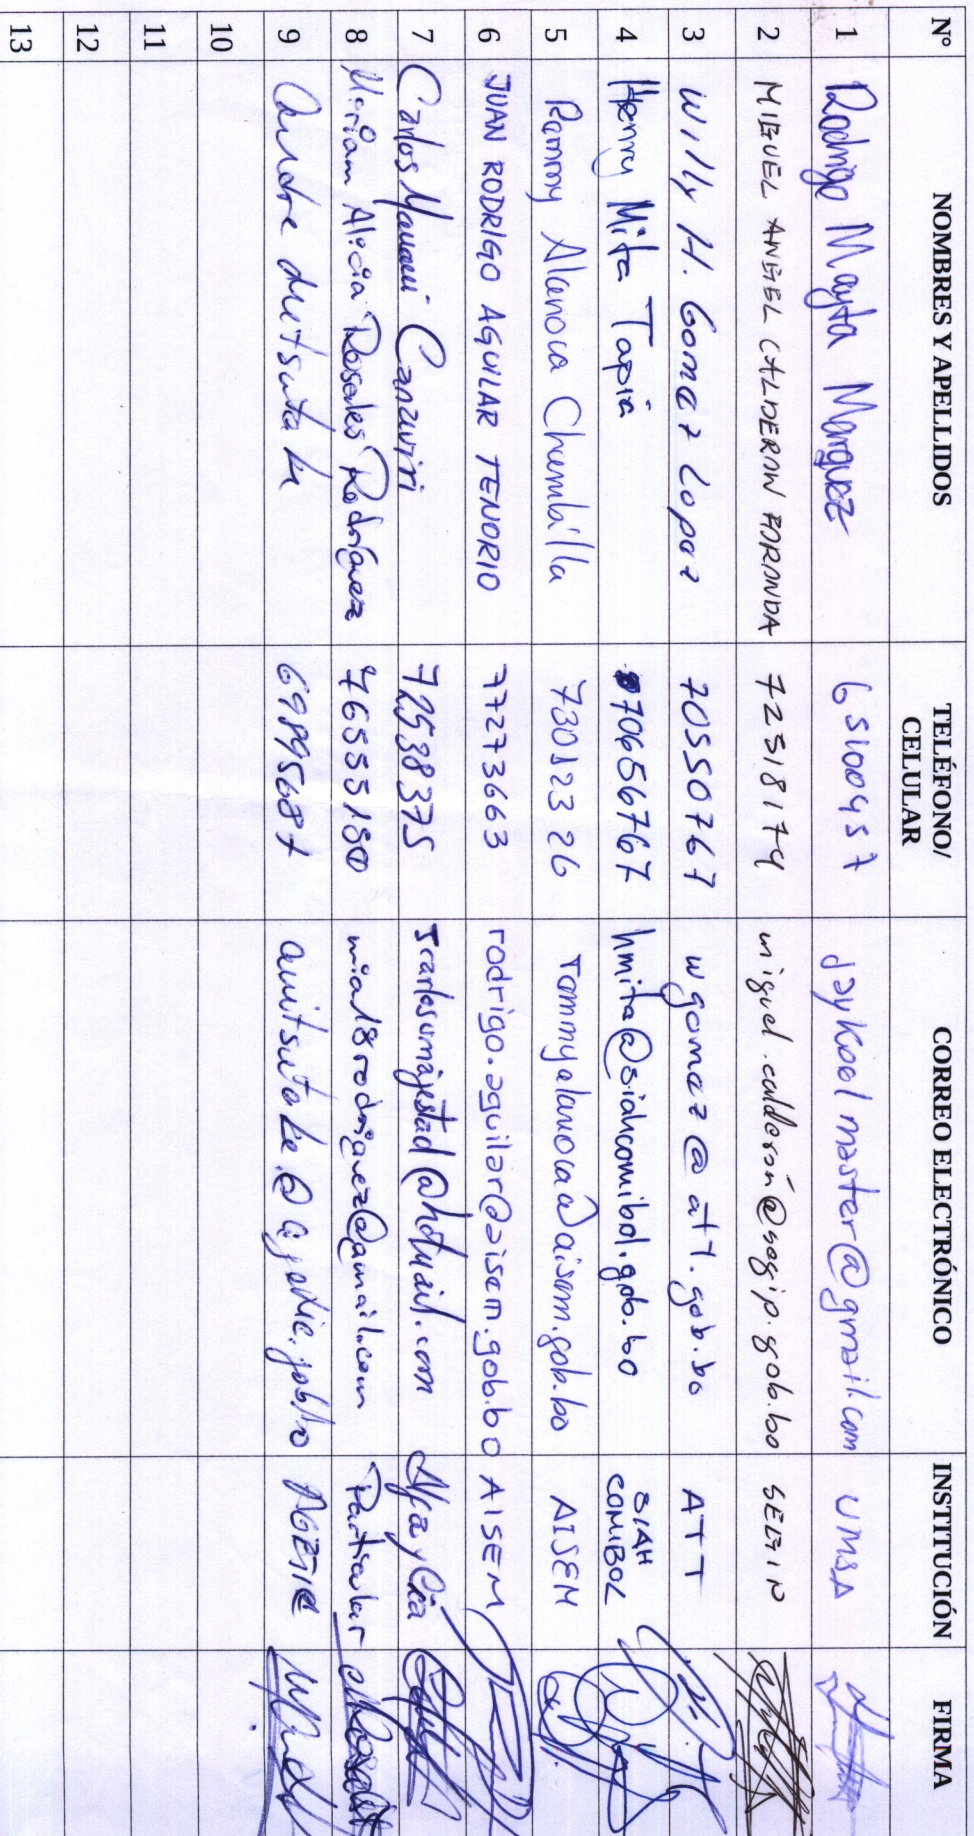 N° NOMBRES Y APELLIDOS TELÉFONO/ CELULAR CORREO ELECTRÓNICO INSTITUCIÓN FIRMA
1 Rodrigo Mayta Marquez 65100457 jaykoolmaster@gmail.com UMSA
2 MIGUEL ANGEL CALDERON ARANDA 72318174 miguel.calderón@segip.gob.bo SEGIP
3 Willy H. Gomez Lopez 70550767 wgomez@att.gob.bo ATT
4 Henry Mita Tapia 70656767 hmita@siahcomibol.gob.bo SIAH COMIBOL
5 Rommy Alanoca Chambilla 73012326 rommyalanoca@aisem.gob.bo AISEM
6 JUAN RODRIGO AGUILAR TENORIO 77273663 rodrigo.aguilar@aisem.gob.bo AISEM
7 Carlos Mamani Canaviri 72538375 Jcarlosumajestad@hotmail.com
8 Miriam Alicia Rosales Rodríguez 76553180 mial18rodriguez@gmail.com Particular
9 69895687 AGETIC
10
11
12
13